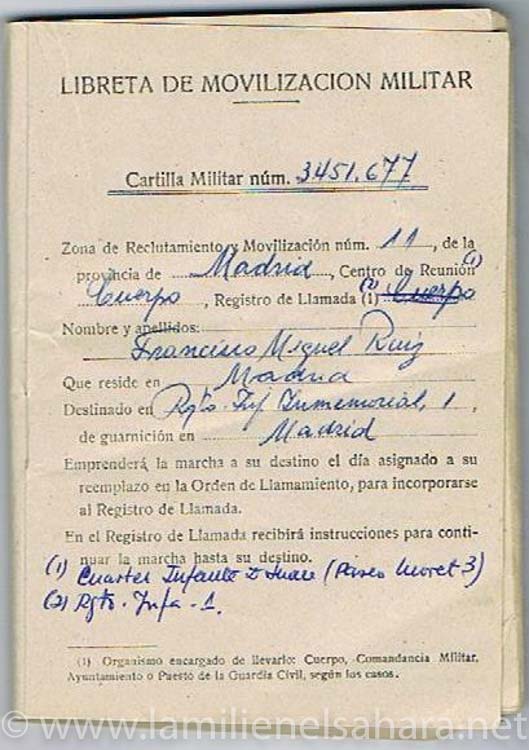 LIBRETA DE MOVILIZACION MILITAR
Cartilla Militar núm. 3451.677
Zona de Reclutamiento y Movilización núm. 11, de la
provincia de Madrid, Centro de Reunión (1)
Cuerpo, Registro de Llamada (1) (2) Cuerpo
Nombre y apellidos:
Francisco Miguel Ruiz
Que reside en Madrid
Destinado en Rgto. Inf Inmemorial, 1,
de guarnición en Madrid
Emprenderá la marcha a su destino el día asignado a su
reemplazo en la Orden de Llamamiento, para incorporarse
al Registro de Llamada.
En el Registro de Llamada recibirá instrucciones para conti-
nuar la marcha hasta su destino.
(1) Cuartel Infante D Juan (Paseo Moret 3)
(2) Rgto. Infa - 1.
(1) Organismo encargado de llevarlo: Cuerpo, Comandancia Militar,
Ayuntamiento o Puesto de la Guardia Civil, según los casos.
© www.lamilienelsahara.net